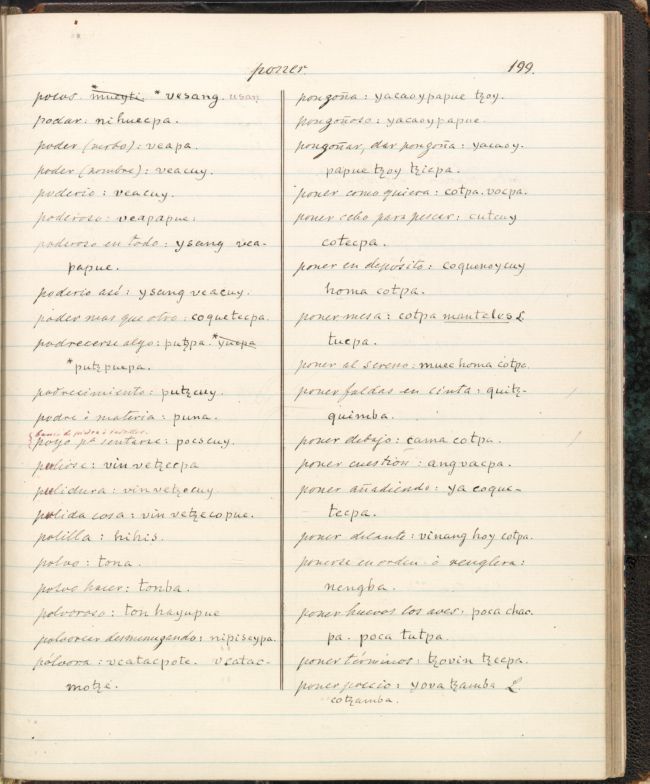 poner.
199.
pocos. *mueyti *vesang. usaŋ
podar: nihuecpa.
poder (verbo): veapa.
poder (nombre): veacuy.
poderio: veacuy.
poderoso: veapapue.
poderoso en todo: ysang vea-
papue.
poderio asó: ysang veacuy.
poder mas que otro: coquetecpa.
podrecerse algo: putzpa. *yucpa
*putzpucpa.
podrecimiento: putzcuy.
podre ò materia: puna.
poyo pª sentarse: pocscuy.
polirse: vin vetzecpa
pulidura: vin vetzocuy.
pulida cosa: vin vetzecopue.
polilla: hihis.
polvo: tona.
polvo hacer: tonba.
polvoroso: ton hayupue
polvorear desmenuzando: nipiscypa.
pólvora: veatacpote. veatac-
motzé.
ponzoña: yacaoypapue tzoy.
ponzoñoso: yacaoypapue.
ponzoñar, dar ponzoña: yacaoy.
papue tzoy tzicpa.
poner como quiera: cotpa. vocpa.
poner cebo para pescar: cutcuy
cotecpa.
poner en depósito: coquenoycuy
homa cotpa.
poner mesa: cotpa manteles L
tucpa.
poner al sereno: muec homa cotpa.
poner faldas en cinta: quitz-
quimba.
poner debajo: cama cotpa.
poner cuestión: angvacpa.
poner añadiendo: ya coque-
tecpa.
poner delante: vinang hoy cotpa.
ponerse en orden ò renglera:
nengba.
poner huevos las aves: poca chac
pa. poca tutpa.
poner términos: tzovin tzecpa.
poner precio: yova tzamba L
cotzamba.